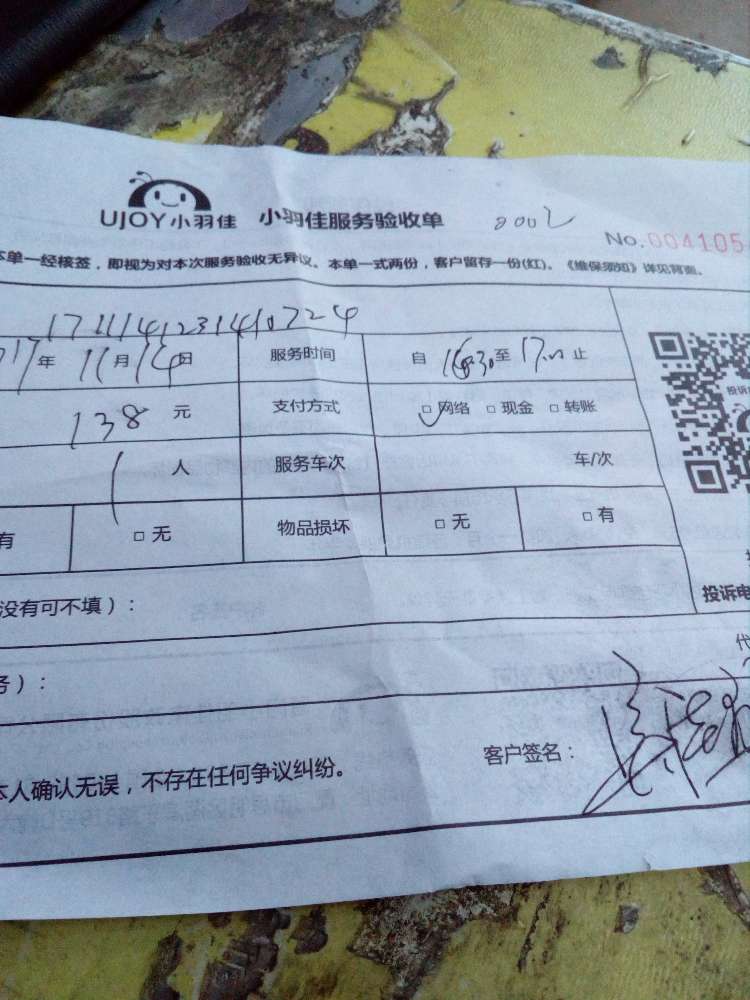 UJOY小羽佳 小羽佳服务验收单 8002
No.004105
本单一经核签，即视为对本次服务验收无异议。本单一式两份，客户留存一份(红)。《维保须知》详见背面。
1711141231410724
17年11月14日 服务时间 自16:30至17:00止
138元 支付方式 □网络 □现金 □转账
1人 服务车次 车/次
有 □无 物品损坏 □无 □有
没有可不填）：
投诉电
务）：
代
本人确认无误，不存在任何争议纠纷。 客户签名：